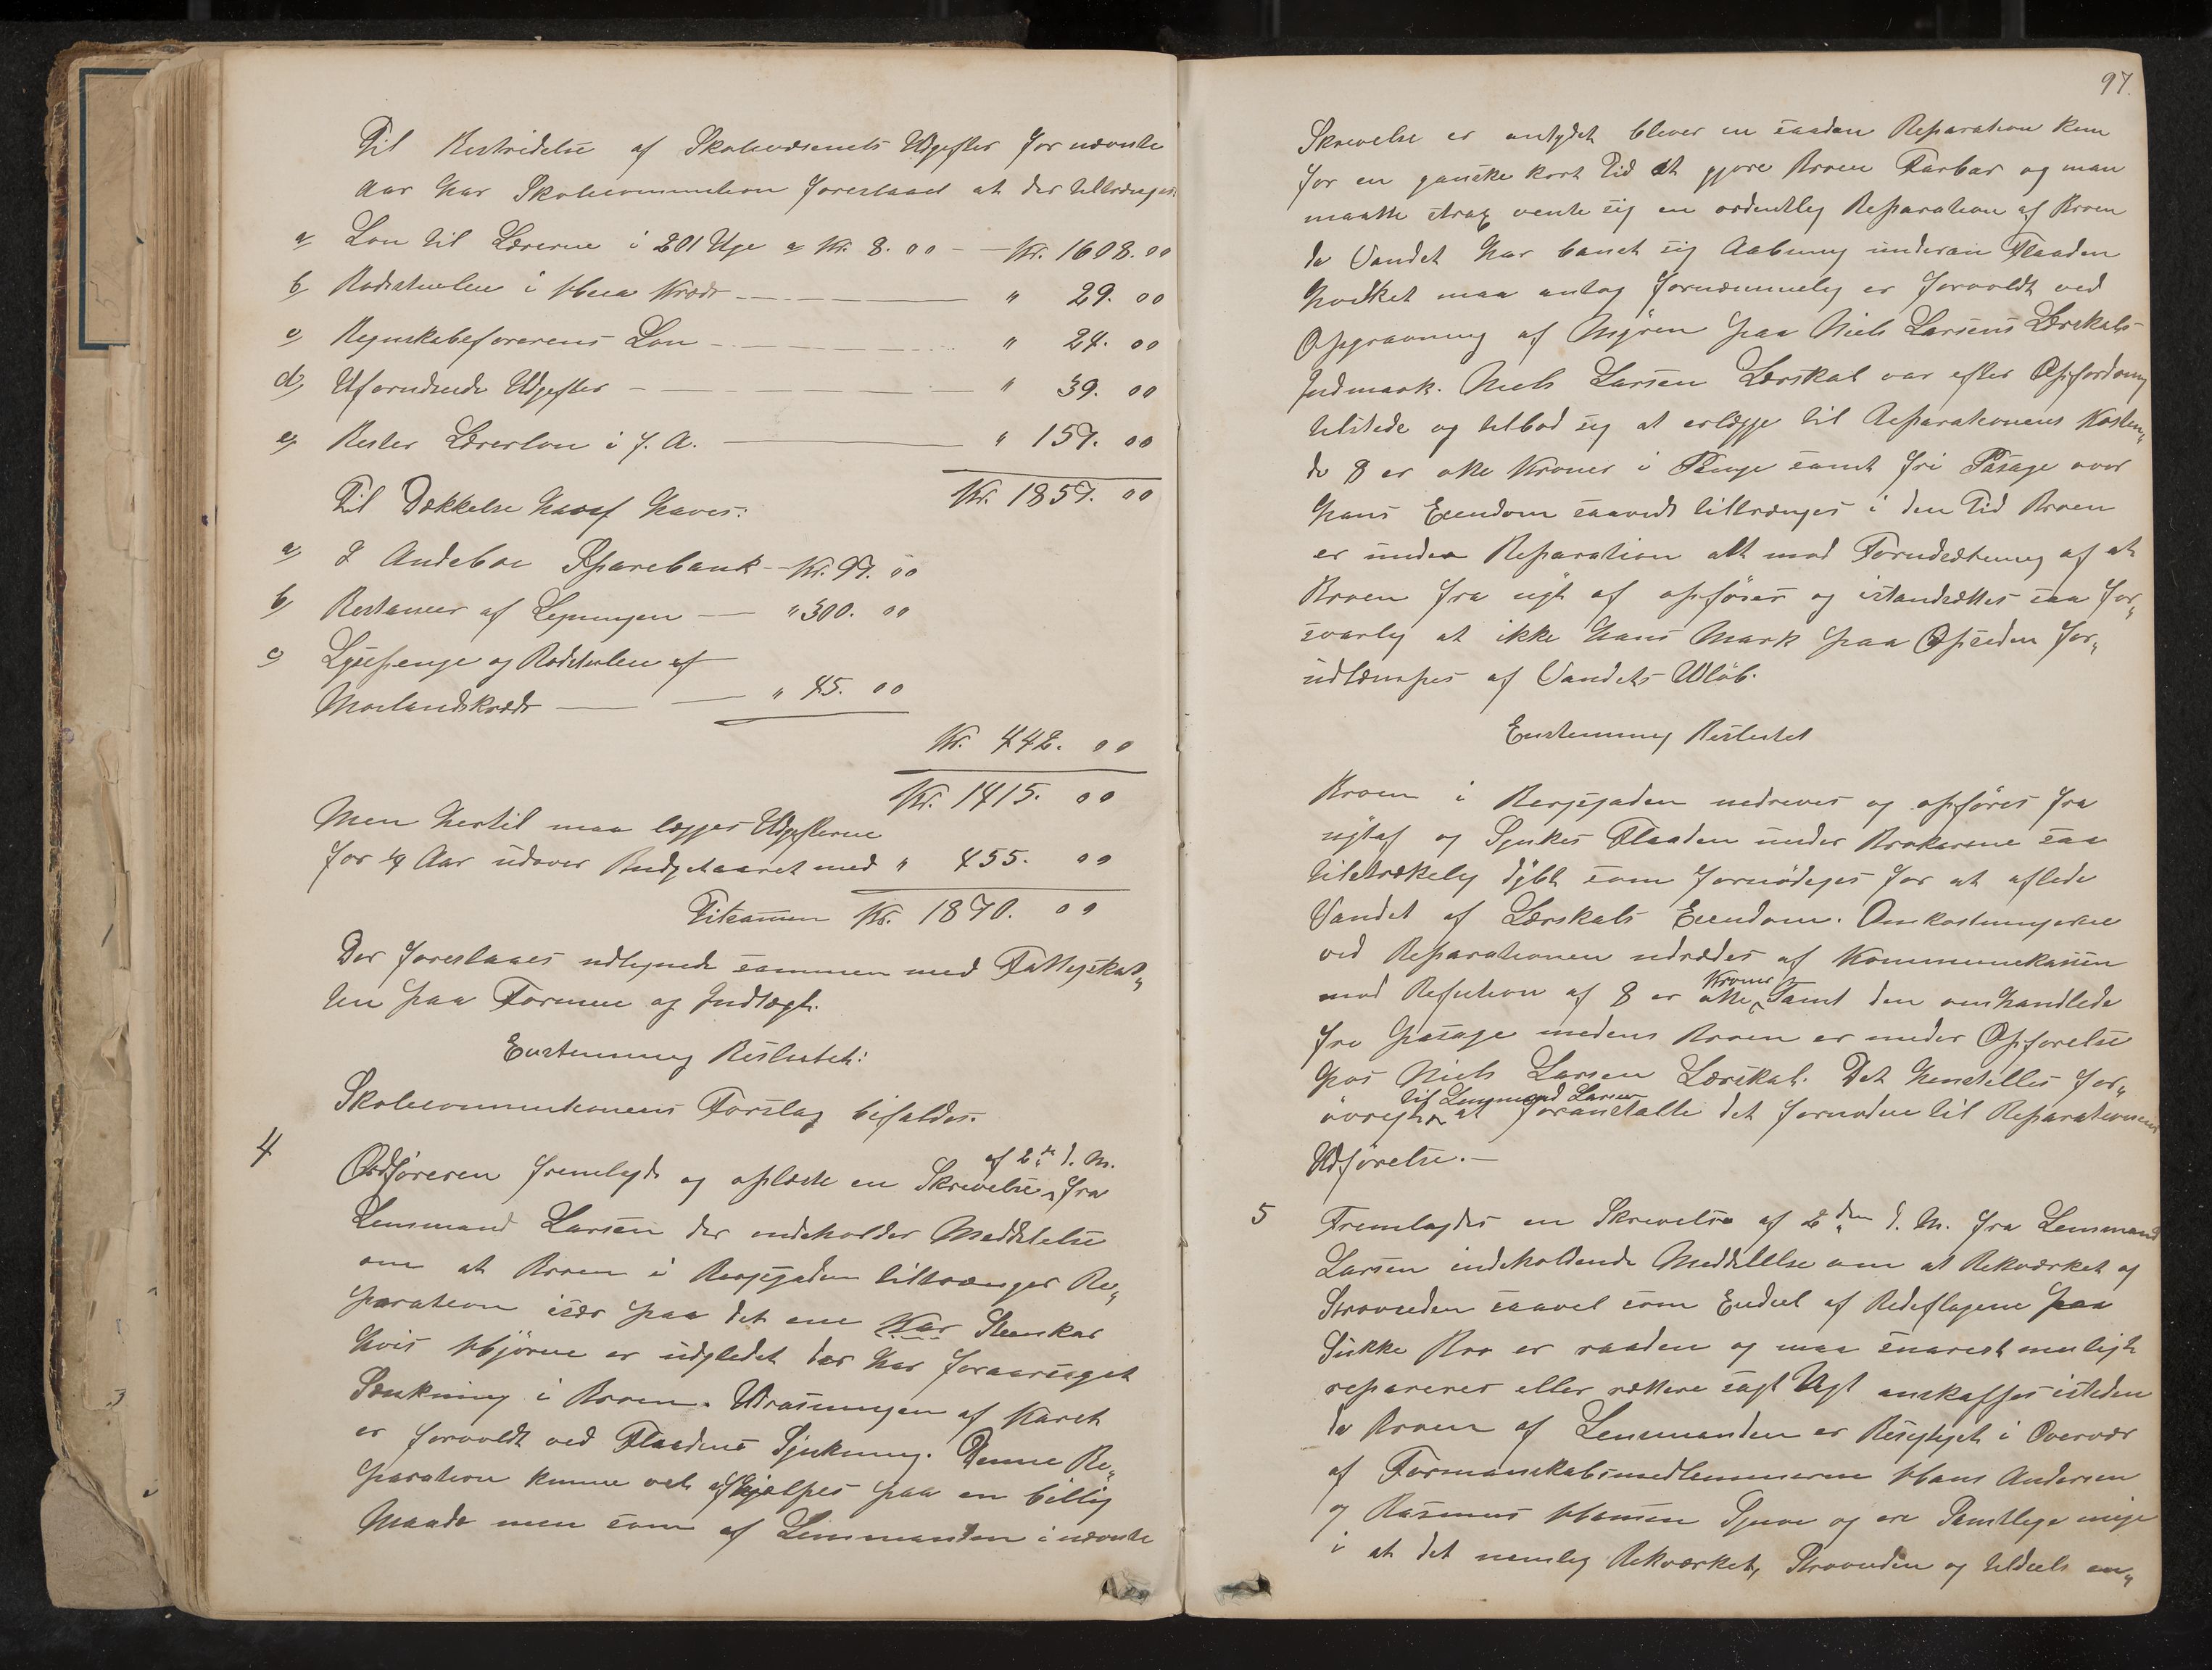 Til Bestridelse af Skolevæsenets Udgifter for nævnte
Aar har Skolecommisionen foreslaaet at der tiltrænges:
a, Løn til Lærerne i 201 Uge a Kr. 8.00 – Kr. 1608.00
b, Rodestueleie i Hua Kreds " 29.00
c, Regnskabsførerens Løn " 24.00
d, Uforudseede Udgifter " 39.00
e, Rester Lærerløn i f. A. " 157.00
Kr. 1857.00
Til Dækkelse heraf haves:
a, I Andebu Sparebank Kr. 97.00
b, Restancer af Ligningen " 300.00
c, Lysepenge og Rodestuleie af
Morlandskreds " 45.00
Kr. 442.00
Kr. 1415.00
Men hertil maa lægges Udgifterne
for ¼ Aar udover Budgetaaret med " 455.00
Tilsammen Kr. 1870.00
Der foreslaaes udlignede sammen med Fattigskat„
ten paa Formue og Indtægt.
Enstemmig Besluttet:
Skolecommisionens Forslag bifaldes.
4 Ordføreren fremlagde og oplæste en Skrivelse af 2de d. M. fra
Lensmand Larsen der indeholder Meddelelse
om at Broen i Bergsgaden tiltrænger Re„
paration især paa det ene Kar Steenkar
hvis Hjørne er udgledet der har foraarsaget
Sænkning i Broen. Udrasningen af Karet
er forvoldt ved Flaadens Synkning. Denne Re„
paration kunne vel afhjælpes paa en billig
Maade men som af Lensmanden i nævnte
97.
Skrivelse er antydet bliver en saadan Reparation kun
for en ganske kort Tid at gjøre Broen Farbar og man
maatte strax vente sig en ordentlig Reparation af Broen
da Vandet har banet sig Aabning under Flaaden
hvilket man antog fornæmmelig er forvoldt ved
Opgravning af Myren paa Niels Larsens Lerskals
Indmark. Niels Larsen Lerskal var efter Opfordring
tilstede og tilbød sig at erlægge til Reparationens Kosten„
de 8 er otte Kroner i Penge samt fri Pasage over
hans Eiendom saavidt tiltrænges i den Tid Broen
er under Reparation alt mod Forudsætning af at
Broen fra nyt af opføres og istandsættes saa for„
svarlig at ikke hans Mark paa Opsiden for„
udlæmpes af Vandets Udløb.
Enstemmig Besluttet
Broen i Bergsgaden nedrives og opføres fra
nyt af og Synkes Flaaden under Brokarene saa
tilstrækelig dybt som fornødiges for at aflede
Vandet af Lerskals Eiendom. Omkostningerne
ved Reparationen udredes af Kommunekassen
mod Refution af 8 er otte Kroner samt den omhandlede
fri Pasage medens Broen er under Opførelse
hos Niels Larsen Lerskal. Det henstilles for„
øvrigt til Lensmand Larsen at foranstalte det fornødne til Reparationens
Udførelse.—
5 Fremlagdes en Skrivelse af 2den d. M. fra Lensmand
Larsen indeholdende Meddelelse om at Rekværket og
Strøveden saavel som Endeel af Redeflagene paa
Sukke Bro er raaden og maa snarest muligt
repareres eller rettere sagt Nyt anskaffes isteden
da Broen af Lensmanden er Besigtiget i Overvær
af Formandskabsmedlemmerne Hans Andersen
og Rasmus Hansen Gjuve og ere Samtlige enige
i at det nemlig Rekværket, Strøveden og tildeels en„